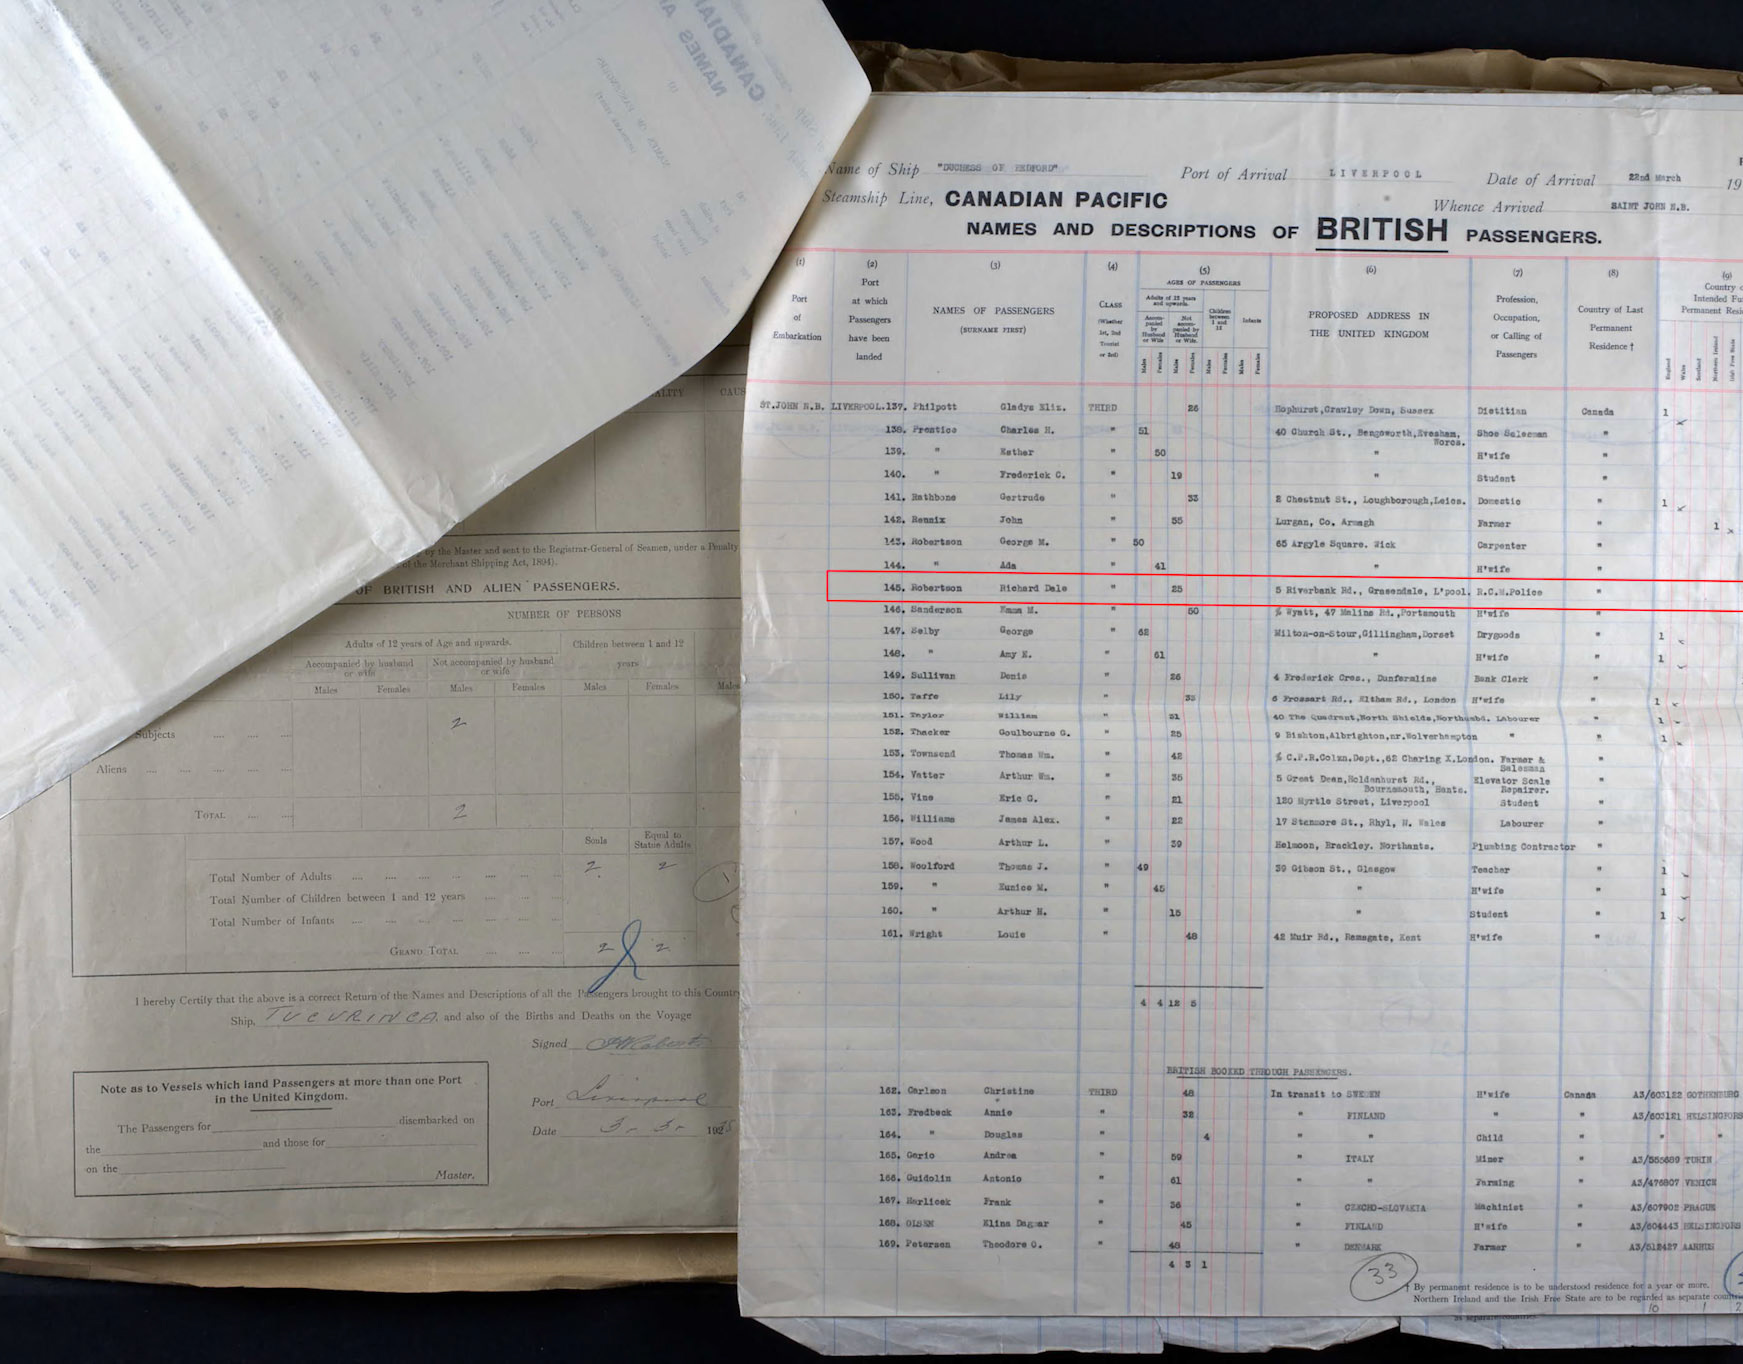 Name of Ship "DUCHESS OF BEDFORD" Port of Arrival LIVERPOOL Date of Arrival 22nd March 19
Steamship Line, CANADIAN PACIFIC Whence Arrived SAINT JOHN N.B.
NAMES AND DESCRIPTIONS OF BRITISH PASSENGERS.
(1) Port of Embarkation
(2) Port at which Passengers have been landed
(3) NAMES OF PASSENGERS (SURNAME FIRST)
(4) CLASS (Whether 1st, 2nd Tourist or 3rd)
(5) AGES OF PASSENGERS
Adults of 12 years and upwards.
Accompanied by Husband or Wife
Not accompanied by Husband or Wife
Children between 1 and 12
Infants
Males Females Males Females Males Females Males Females
(6) PROPOSED ADDRESS IN THE UNITED KINGDOM
(7) Profession, Occupation, or Calling of Passengers
(8) Country of Last Permanent Residence †
(9) Country
Intended Fu
Permanent Resi
England Wales Scotland Northern Ireland Irish Free State
ST.JOHN N.B. LIVERPOOL. 137. Philpott Gladys Eliz. THIRD 26 Hophurst,Crawley Down, Sussex Dietitian Canada 1
138. Prentice Charles H. " 51 40 Church St., Bengeworth,Evesham, Worcs. Shoe Salesman "
139. " Esther " 50 " H'wife "
140. " Frederick C. " 19 " Student "
141. Rathbone Gertrude " 33 2 Chestnut St., Loughborough,Leics. Domestic " 1
142. Rennix John " 55 Lurgan, Co. Armagh Farmer " 1
143. Robertson George M. " 50 65 Argyle Square. Wick Carpenter "
144. " Ada " 41 " H'wife "
145. Robertson Richard Dale " 25 5 Riverbank Rd., Grassendale, L'pool. R.C.M.Police "
146. Sanderson Emma M. " 60 % Wyatt, 47 Maline Rd.,Portsmouth H'wife "
147. Selby George " 62 Milton-on-Stour,Gillingham,Dorset Drygoods " 1
148. " Amy K. " 61 " H'wife " 1
149. Sullivan Denis " 26 4 Frederick Cres., Dunfermline Bank Clerk "
150. Taffe Lily " 35 6 Frossart Rd., Eltham Rd., London H'wife " 1
151. Taylor William " 31 40 The Quadrant,North Shields,Northumbd. Labourer " 1
152. Thacker Goulbourne G. " 25 9 Bishton,Albrighton,nr.Wolverhampton " " 1
153. Townsend Thomas Wm. " 42 % C.P.R.Colzn.Dept.,62 Charing X.London. Farmer & Salesman "
154. Vatter Arthur Wm. " 35 5 Great Dean,Holdenhurst Rd., Bournemouth, Hants. Elevator Scale Repairer. "
155. Vine Eric G. " 21 120 Myrtle Street, Liverpool Student "
156. Williams James Alex. " 22 17 Stenmore St., Rhyl, N. Wales Labourer "
157. Wood Arthur L. " 39 Helmoon, Brackley. Northants. Plumbing Contractor "
158. Woolford Thomas J. " 49 39 Gibson St., Glasgow Teacher " 1
159. " Eunice M. " 45 " H'wife " 1
160. " Arthur H. " 15 " Student " 1
161. Wright Louie " 48 42 Muir Rd., Ramsgate, Kent H'wife "
4 4 12 5
BRITISH BOOKED THROUGH PASSENGERS.
162. Carlson Christine THIRD 48 In transit to SWEDEN H'wife Canada A3/603122 GOTHENBURG
163. Fredbeck Annie " 32 " FINLAND " " A3/603121 HELSINGFORS
164. " Douglas " 4 " " Child " " "
165. Gario Andrea " 59 " ITALY Miner " A3/555689 TURIN
166. Guidolin Antonio " 61 " " Farming " A3/476807 VENICE
167. Harlicek Frank " 36 " CZECHO-SLOVAKIA Machinist " A3/607902 PRAGUE
168. OLSEN Elina Dagmar " 45 " FINLAND H'wife " A3/604443 HELSINGFORS
169. Petersen Theodore O. " 48 " DENMARK Farmer " A3/512427 AARHUS
4 3 1
33
† By permanent residence is to be understood residence for a year or more.
Northern Ireland and the Irish Free State are to be regarded as separate
10 1 2
CANADIAN
NAMES
ALITY CAUS
by the Master and sent to the Registrar-General of Seamen, under a Penalty
of the Merchant Shipping Act, 1894).
OF BRITISH AND ALIEN PASSENGERS.
NUMBER OF PERSONS
Adults of 12 years of Age and upwards. Children between 1 and 12 years
Accompanied by husband or wife Not accompanied by husband or wife
Males Females Males Females Males Females Males
Subjects 2
Aliens
TOTAL 2
Souls Equal to Statue Adults
Total Number of Adults 2 2
Total Number of Children between 1 and 12 years
Total Number of Infants
GRAND TOTAL 2 2
I hereby Certify that the above is a correct Return of the Names and Descriptions of all the Passengers brought to this Country
Ship, TUCURINCA, and also of the Births and Deaths on the Voyage
Signed
Port Liverpool
Date 3-3- 193
Note as to Vessels which land Passengers at more than one Port in the United Kingdom.
The Passengers for disembarked on
the and those for
on the
Master.